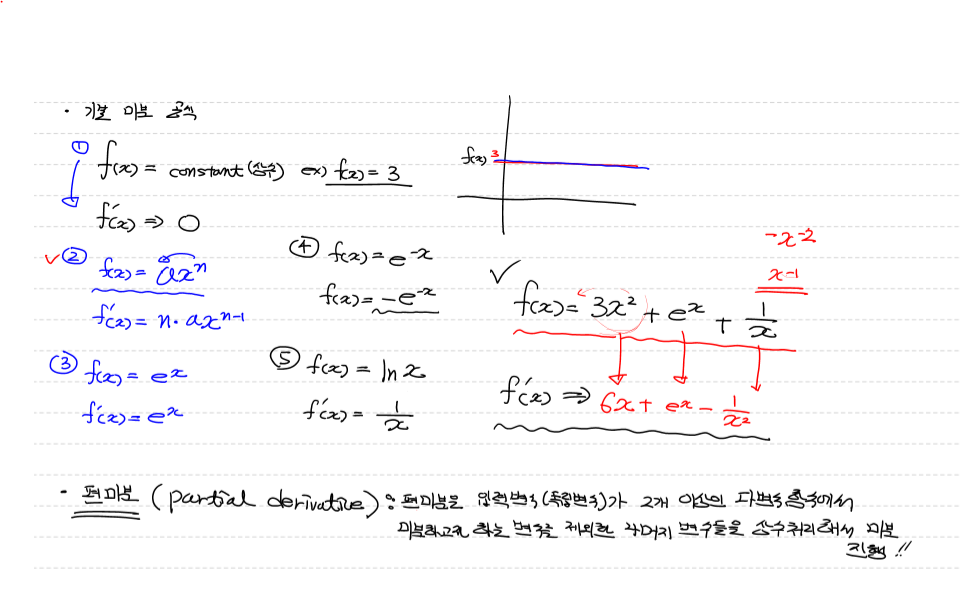 · 기본 미분 공식
① f(x) = constant (상수) ex) f(x) = 3
f'(x) ⇒ 0
f(x) 3
✓② f(x) = axⁿ
f'(x) = n·axⁿ⁻¹
③ f(x) = eˣ
f'(x) = eˣ
④ f(x) = e⁻ˣ
f(x) = -e⁻ˣ
⑤ f(x) = ln x
f'(x) = 1/x
-x⁻²
x⁻¹
✓ f(x) = 3x² + eˣ + 1/x
f'(x) ⇒ 6x + eˣ - 1/x²
· 편미분 (partial derivative) : 편미분은 입력변수(독립변수)가 2개 이상인 다변수 함수에서
미분하고자 하는 변수를 제외한 나머지 변수들을 상수취급해서 미분
진행!!